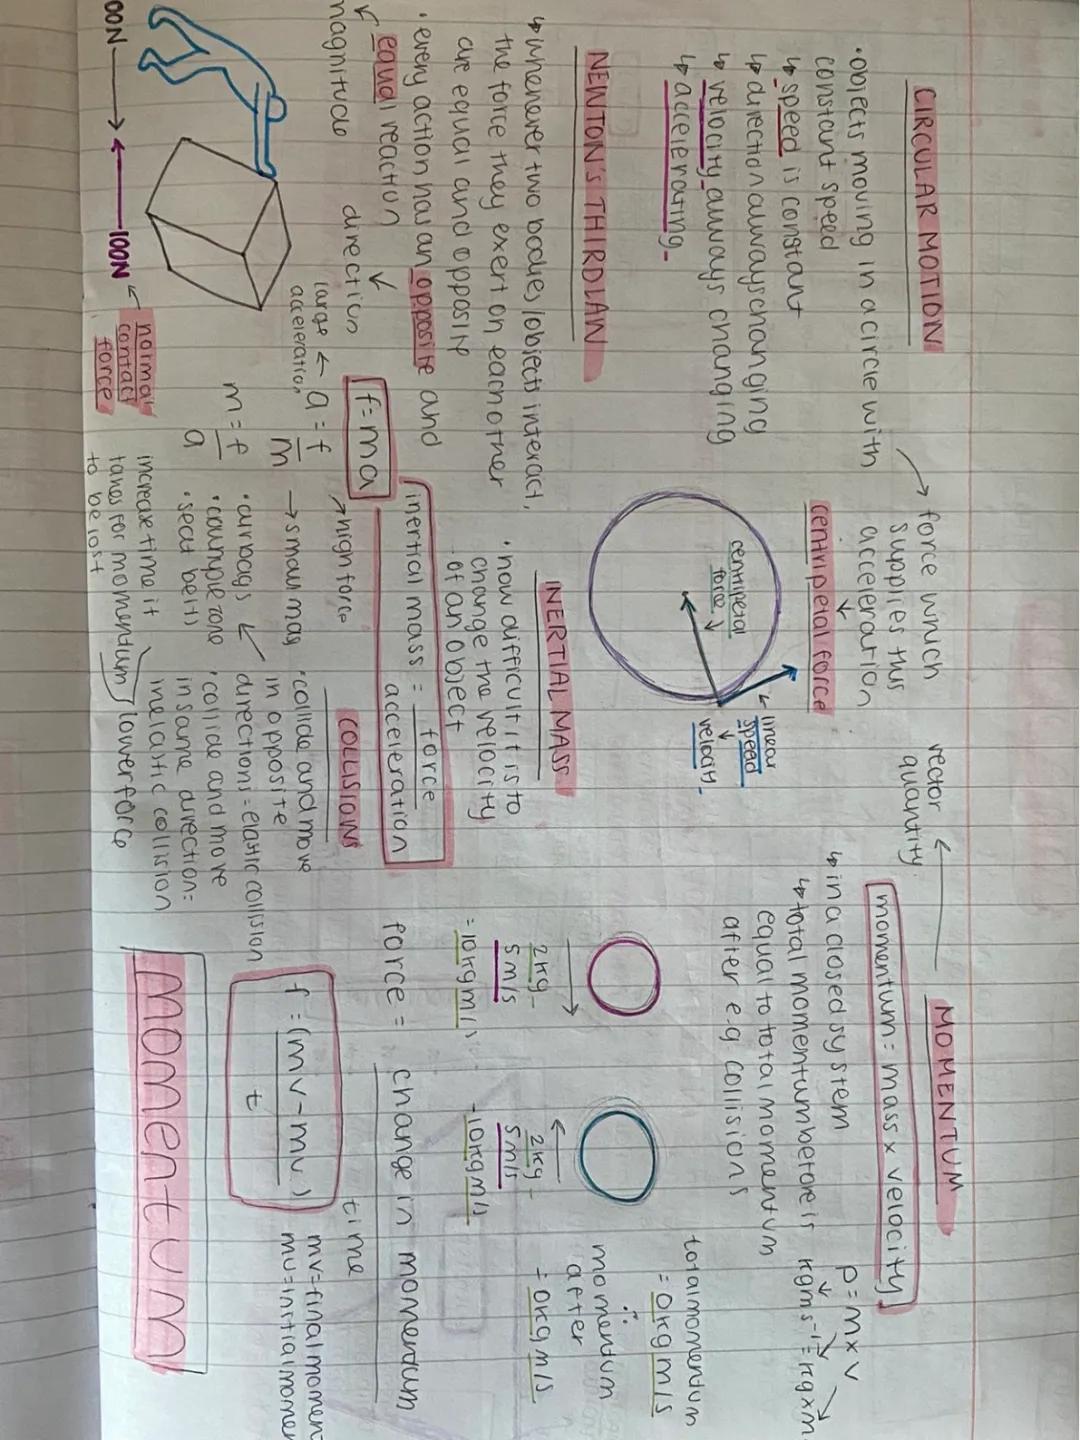 CIRCULAR MOTION
•objects moving in a circle with
constant speed
↳ speed is constant
↳ direction always changing
↳ velocity always changing
↳ accelerating
→ force which
supplies this
acceleration
centripetal force
centripetal
force
linear
speed
velocity
NEWTON'S THIRD LAW
↳ whenever two bodies/objects interact,
the force they exert on each other
are equal and opposite
• every action has an opposite and
equal reaction
magnitude
direction
00N → ← 100N
normal
contact
force
INERTIAL MASS
• how difficult it is to
change the velocity
of an object
inertial mass = force
acceleration
f=ma
large
acceleration
← a = f
m
→ high force
→ small mass
m = f
a
• airbags
• crumple zone
• seat belts
increase time it
takes for momentum
to be lost
lower force
COLLISIONS
• collide and move
in opposite
directions = elastic collision
• collide and move
in same direction =
inelastic collision
MOMENTUM
vector
quantity
momentum = mass x velocity
p = m x v
kgms⁻¹ = kg x m
↳ in a closed system
↳ total momentum before is
equal to total momentum
after e.g collisions
2kg
5m/s
= 10kgm/s
2kg
5m/s
-10kgm/s
total momentum
= 0kgm/s
∴
momentum
after
= 0kgm/s
force = change in momentum
time
f = (mv - mu)
t
mv = final momen
mu = initial momen
momentum